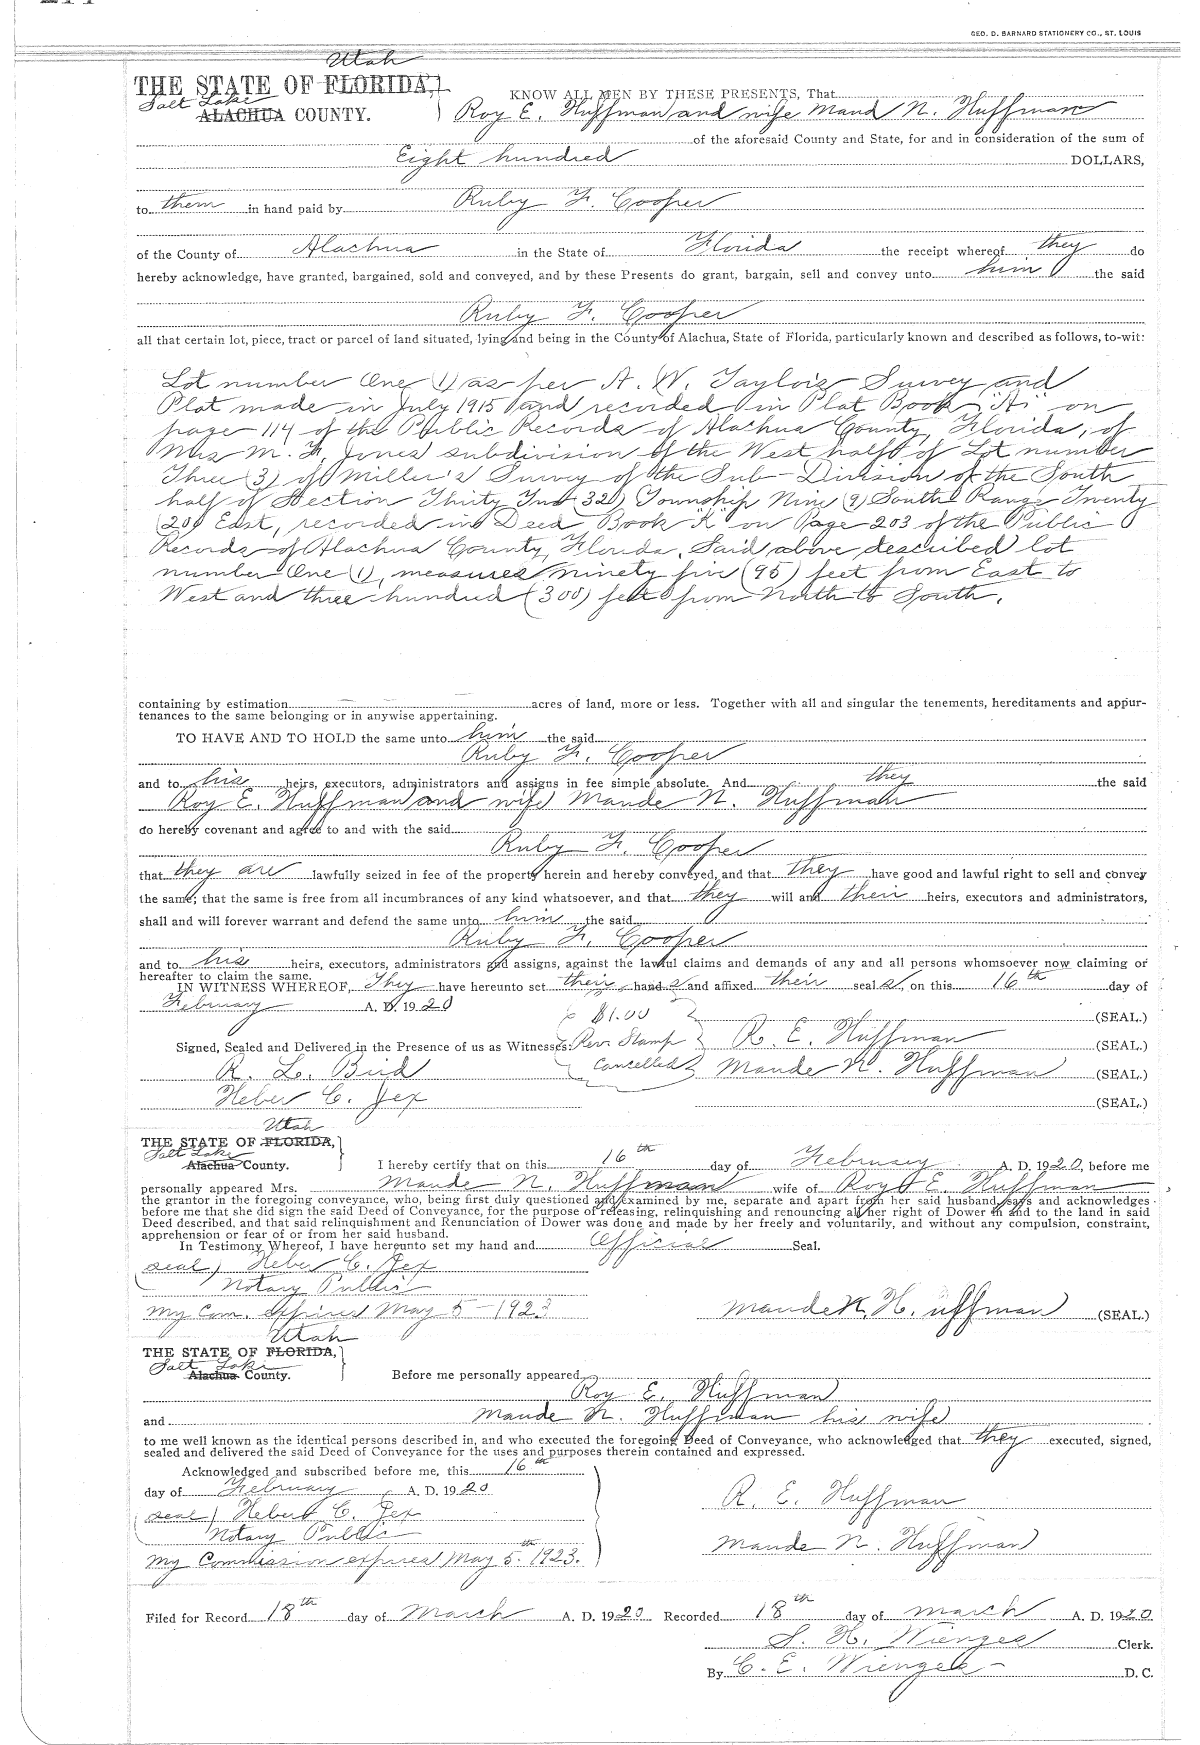 GEO. D. BARNARD STATIONERY CO., ST. LOUIS
Utah
THE STATE OF FLORIDA,
Salt Lake
ALACHUA COUNTY.
KNOW ALL MEN BY THESE PRESENTS, That
Roy E. Huffman and wife Maud N. Huffman
of the aforesaid County and State, for and in consideration of the sum of
Eight hundred DOLLARS,
to them in hand paid by Ruby F. Cooper
of the County of Alachua in the State of Florida the receipt whereof they do
hereby acknowledge, have granted, bargained, sold and conveyed, and by these Presents do grant, bargain, sell and convey unto him the said
Ruby F. Cooper
all that certain lot, piece, tract or parcel of land situated, lying and being in the County of Alachua, State of Florida, particularly known and described as follows, to-wit:
Lot number One (1) as per A. W. Taylor's Survey and
Plat made in July 1915 and recorded in Plat Book "A" on
page 114 of the Public Records of Alachua County, Florida, of
Mrs M. F. Jones subdivision of the West half of Lot number
Three (3) of Miller's Survey of the Sub-Division of the South
half of Section Thirty Two (32) Township Nine (9) South Range Twenty
(20) East, recorded in Deed Book "K" on Page 203 of the Public
Records of Alachua County, Florida. Said above described lot
number One (1), measures ninety five (95) feet from East to
West and three hundred (300) feet from North to South.
containing by estimation acres of land, more or less. Together with all and singular the tenements, hereditaments and appur-
tenances to the same belonging or in anywise appertaining.
TO HAVE AND TO HOLD the same unto him the said
Ruby F. Cooper
and to his heirs, executors, administrators and assigns in fee simple absolute. And they the said
Roy E. Huffman and wife Maude N. Huffman
do hereby covenant and agree to and with the said
Ruby F. Cooper
that they are lawfully seized in fee of the property herein and hereby conveyed, and that they have good and lawful right to sell and convey
the same; that the same is free from all incumbrances of any kind whatsoever, and that they will and their heirs, executors and administrators,
shall and will forever warrant and defend the same unto him the said
Ruby F. Cooper
and to his heirs, executors, administrators and assigns, against the lawful claims and demands of any and all persons whomsoever now claiming or
hereafter to claim the same.
IN WITNESS WHEREOF, They have hereunto set their hand s and affixed their seal s, on this 16th day of
February A. D. 1920
$1.00 (SEAL.)
Signed, Sealed and Delivered in the Presence of us as Witnesses: Rev. Stamp R. E. Huffman (SEAL.)
R. L. Bird Cancelled Maude N. Huffman (SEAL.)
Heber C. Jex (SEAL.)
Utah
THE STATE OF FLORIDA,
Salt Lake
Alachua County.
I hereby certify that on this 16th day of February A. D. 1920, before me
personally appeared Mrs. Maude N. Huffman wife of Roy E. Huffman
the grantor in the foregoing conveyance, who, being first duly questioned and examined by me, separate and apart from her said husband, says and acknowledges
before me that she did sign the said Deed of Conveyance, for the purpose of releasing, relinquishing and renouncing all her right of Dower in and to the land in said
Deed described, and that said relinquishment and Renunciation of Dower was done and made by her freely and voluntarily, and without any compulsion, constraint,
apprehension or fear of or from her said husband.
In Testimony Whereof, I have hereunto set my hand and Official Seal.
seal) Heber C. Jex
Notary Public
My Com. expires May 5-1923 Maude N. Huffman (SEAL.)
Utah
THE STATE OF FLORIDA,
Salt Lake
Alachua County.
Before me personally appeared
Roy E. Huffman
and Maude N. Huffman his wife
to me well known as the identical persons described in, and who executed the foregoing Deed of Conveyance, who acknowledged that they executed, signed,
sealed and delivered the said Deed of Conveyance for the uses and purposes therein contained and expressed.
Acknowledged and subscribed before me, this 16th
day of February A. D. 1920
R. E. Huffman
seal) Heber C. Jex
Notary Public
Maude N. Huffman
My Commission expires May 5th 1923.
Filed for Record 18th day of March A. D. 1920 Recorded 18th day of March A. D. 1920
S. H. Wienges Clerk.
By C. E. Wienges D. C.